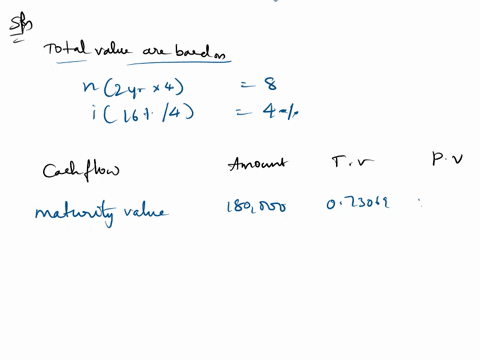 Sln
Total value are based on
n (2yr × 4) = 8
i (16% / 4) = 4%
Cashflow Amount T.V P.V
maturity value 180,000 0.73069